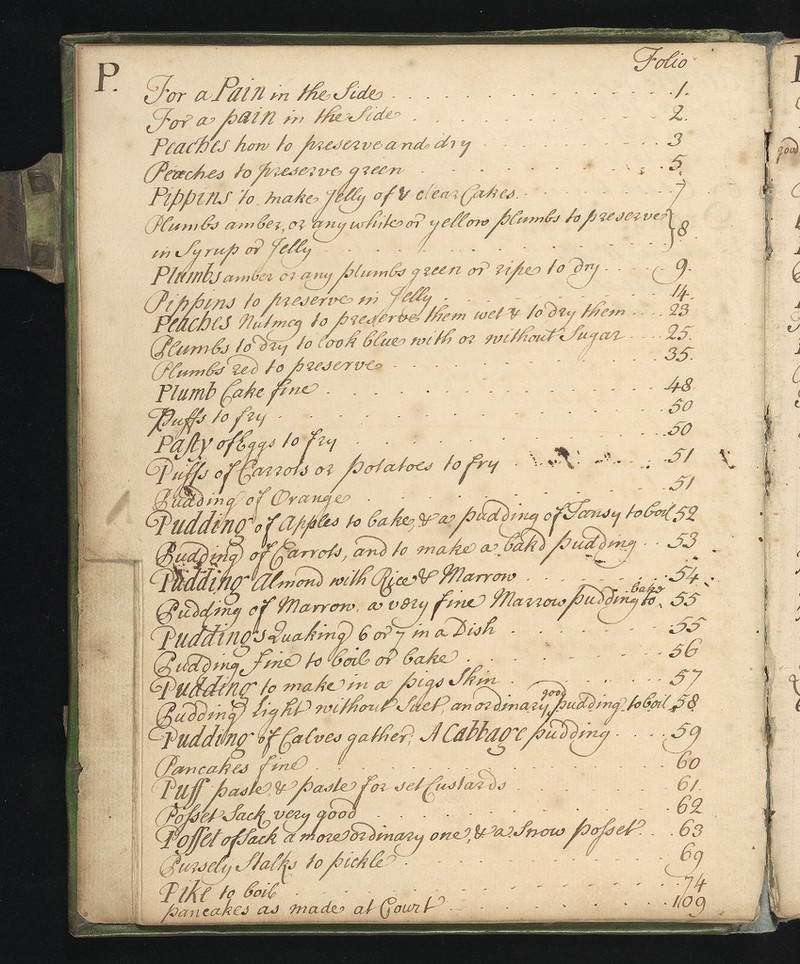 P.
Folio
For a Pain in the Side 1.
For a pain in the Side 2.
Peaches how to preserve and dry 3
Peaches to preserve green 5.
Pippins to make Jelly of & clear Cakes 7
Plumbs amber, or any white or yellow plumbs to preserve
in Syrup or Jelly 8
Plumbs amber or any plumbs green or ripe to dry 9.
Pippins to preserve in Jelly 14.
Peaches Nutmeg to preserve them wet & to dry them 23
Plumbs to dry to look blue with or without Sugar 25.
Plumbs red to preserve 35.
Plumb Cake fine 48
Puffs to fry 50
Pasty of Eggs to fry 50
Puffs of Carrots or potatoes to fry 51
Pudding of Orange 51
Pudding of Apples to bake, & a pudding of Tansy to boil 52
Pudding of Carrots, and to make a bak'd pudding 53
Pudding Almond with Rice & Marrow 54
Pudding of Marrow, a very fine Marrow pudding to bake 55
Puddings Quaking 6 or 7 in a Dish 55
Pudding fine to boil or bake 56
Pudding to make in a pigs Skin 57
Pudding Light without Suet, an ordinary good pudding to boil 58
Pudding of Calves gather, A Cabbage pudding 59
Pancakes fine 60
Puff paste & paste for set Custards 61
Posset Sack very good 62
Posset of Sack a more ordinary one, & a Snow posset 63
Pursely Stalks to pickle 69
Pike to boil 74
pancakes as made at Court 109
good